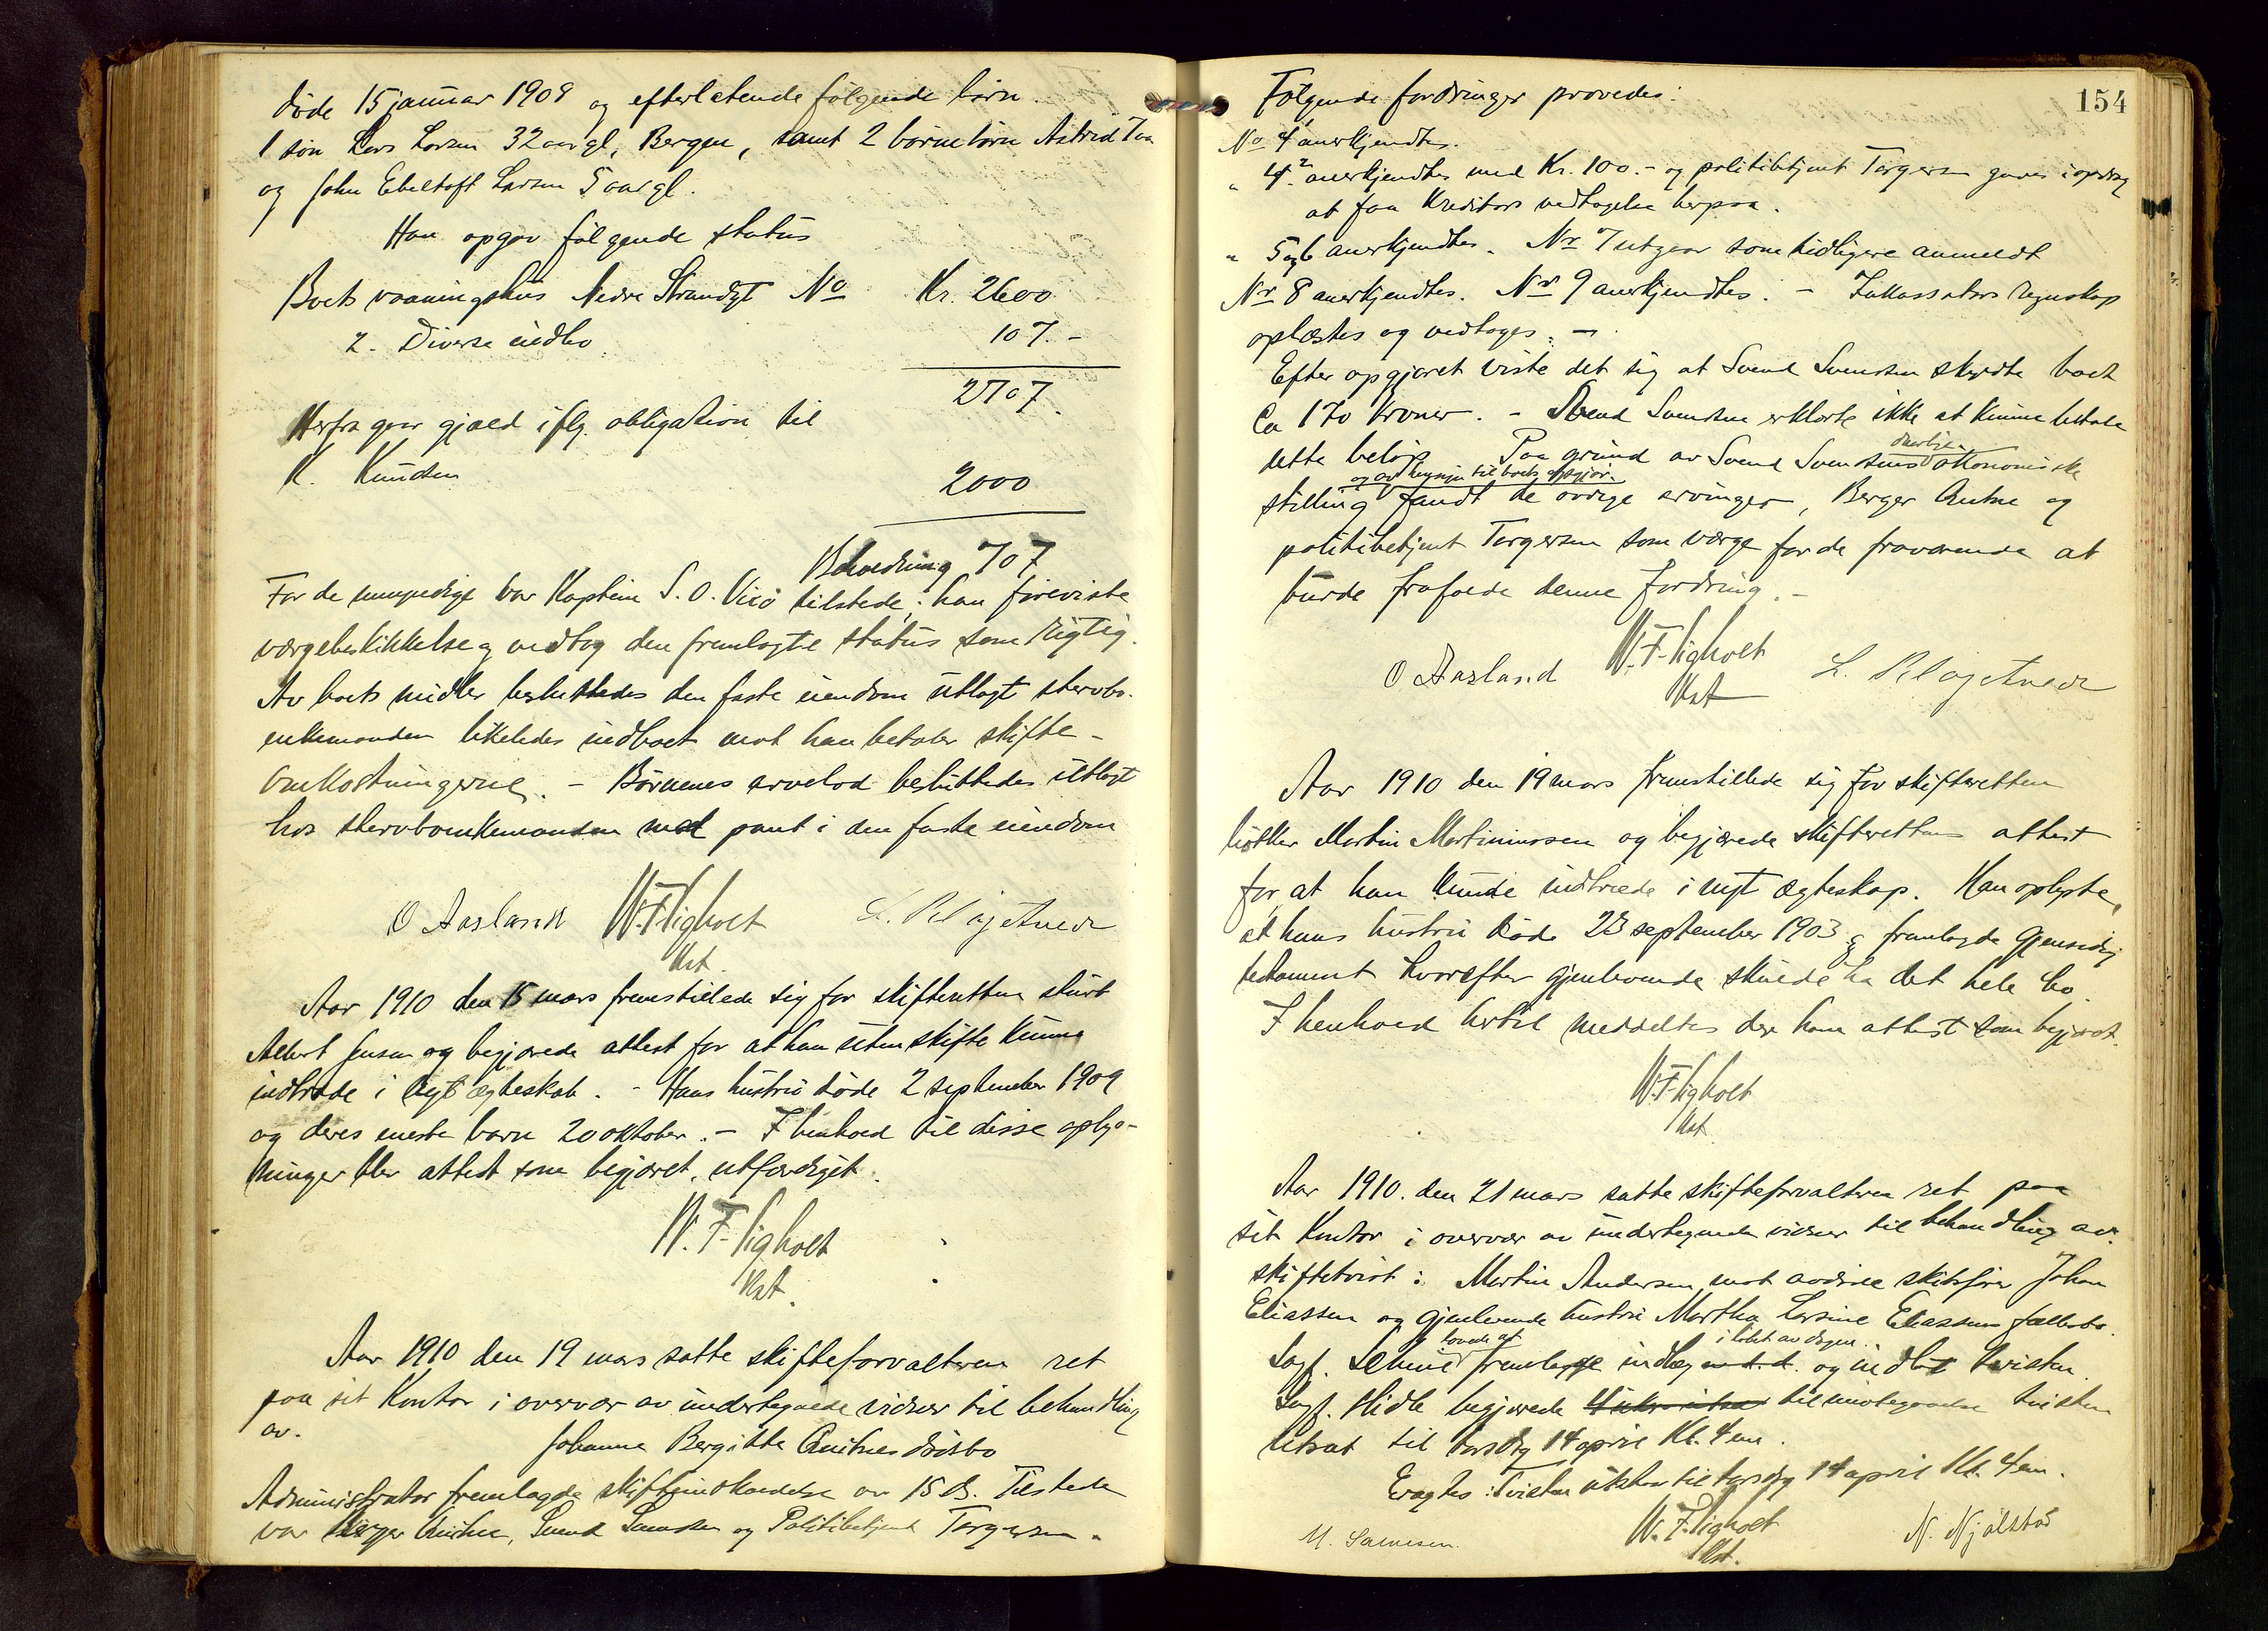 döde 15 januar 1908 og efterlatende følgende børn.
1 søn Lars Larsen 32 aar gl, Bergen, samt 2 barnebørn Astrid 7 aa
og John Ebeltoft Larsen 5 aar gl.
Han opgav følgende status
Boets vaaningshus Nedre Strandgt No Kr. 2600
2. Diverse indbo 107.-
2707.
Herfra gaar gjæld iflg. obligation til
K. Knudsen 2000
Beholdning 707
For de umyndige var Kaptein S. O. Viiö tilstede; han foreviste
værgebeskikkelse og vedtog den fremlagte status som rigtig.
Av boets midler besluttedes den faste eiendom utlagt stervbo-
enkemanden likeledes indboet mot han betaler skifte-
omkostningerne. - Børnenes arvelod besluttedes utlagt
hos stervboenkemanden mot pant i den faste eiendom
O Aasland W. F. Ligholt
Kst.
Aar 1910 den 15 mars fremstillede sig for skifteretten
Albert Jensen og begjærede attest for at han uten skifte kunne
indtræde i nyt ægteskab. - Hans hustru døde 2 september 1909
og deres eneste barn 20 oktober. - I henhold til disse oplys-
ninger blev attest som begjæret, utfærdiget.
W. F. Ligholt
Kst.
Aar 1910 den 19 mars satte skifteforvalteren ret
paa sit Kontor i overvær av undertegnede vidner til behandling
av.
Johanne Bergitte
Administrator fremlagde skifteindkaldelse av 15 ds. Tilstede
var Berger Svend Svendsen og Politibetjent Torgersen.
154
Følgende fordringer prøvedes:
No 4¹ anerkjendtes.
" 4² anerkjendtes med Kr. 100.- og politibetjent Torgersen gaves i opdrag
at faa Kreditors vedtagelse herpaa.
" 5 og 6 anerkjendtes. Nr 7 utgaar som tidligere anmeldt
Nr 8 anerkjendtes. Nr 9 anerkjendtes. - Inkassators regnskap
oplæstes og vedtoges. -
Efter opgjøret viste det sig at Svend Svendsen skyldte boet
Ca 170 kroner. - Svend Svendsen erklærte ikke at kunne betale
dette beløp. Paa grund av Svend Svendsens daarlige økonomiske
og av hensyn til boets opgjør.
stilling fandt de øvrige arvinger, Berger og
politibetjent Torgersen som værge for de fraværende at
burde frafalde denne fordring. -
O Aasland W. F. Ligholt
Kst
Aar 1910 den 19 mars fremstillede sig for skifteretten
bøkker Martin Martiniussen og begjærede skifterettens attest
for at han kunde indtræde i nyt ægteskap. Han oplyste,
at hans hustru døde 23 september 1903 og fremlagde gjensidig
testament hvorefter gjenlevende skulde ha det hele bo.
I henhold hertil meddeltes der ham attest som begjæret.
W. F. Ligholt
Kst
Aar 1910. den 21 mars satte skifteforvalteren ret paa
sit Kontor i overvær av undertegnede vidner til behandling av
skiftetvist: Martin Andersen mot avdøde skibsfører Johan
Eliassen og gjenlevende hustru Martha Lorsine Eliassens fællesbo.
lovede at i løbet av dagen
Sagf. fremlegge indlæg og indlot tvisten.
Sagf. Hidle begjærede til imøtegaaelse tvisten
utsat til torsdag 14 april Kl. 4 em.
Eragtes: Tvisten utstaar til torsdag 14 april Kl. 4 em.
M. Samsen. W. F. Ligholt N. Njålstad
Kst.